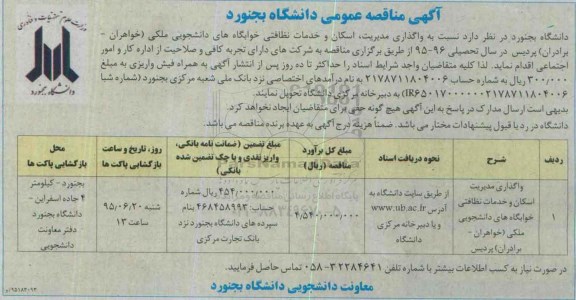 آگهی مناقصه عمومی دانشگاه بجنورد
وزارت علوم، تحقیقات و فناوری
دانشگاه بجنورد
دانشگاه بجنورد در نظر دارد نسبت به واگذاری مدیریت، اسکان و خدمات نظافتی خوابگاه های دانشجویی ملکی (خواهران -
برادران) پردیس در سال تحصیلی ۹۶-۹۵ از طریق برگزاری مناقصه به شرکت های دارای تجربه کافی و صلاحیت از اداره کار و امور
اجتماعی اقدام نماید. لذا کلیه متقاضیان واجد شرایط اسناد را حداکثر تا ده روز پس از انتشار آگهی به همراه فیش واریزی به مبلغ
۳۰۰/۰۰۰ ریال به شماره حساب ۲۱۷۸۷۱۱۸۰۴۰۰۶ به نام درآمدهای اختصاصی نزد بانک ملی شعبه مرکزی بجنورد (شماره شبا
IR۶۵۰۱۷۰۰۰۰۰۰۲۱۷۸۷۱۱۸۰۴۰۰۶) به دبیرخانه مرکزی دانشگاه تحویل نمایند.
بدیهی است ارسال مدارک در پاسخ به این آگهی هیچ گونه حقی برای متقاضیان ایجاد نخواهد کرد.
دانشگاه در رد یا قبول پیشنهادات مختار می باشد. ضمناً هزینه درج آگهی به عهده برنده مناقصه می باشد.
ردیف
شرح
نحوه دریافت اسناد
مبلغ کل برآورد
مناقصه (ریال)
مبلغ تضمین (ضمانت نامه بانکی،
واریز نقدی و یا چک تضمین شده
بانکی)
روز، تاریخ و ساعت
بازگشایی پاکت ها
محل
بازگشایی پاکت ها
۱
واگذاری مدیریت
اسکان و خدمات نظافتی
خوابگاه های دانشجویی
ملکی (خواهران -
برادران) پردیس
از طریق سایت دانشگاه به
آدرس www.ub.ac.ir
و یا دبیرخانه مرکزی
دانشگاه
۴/۵۴۰/۰۰۰/۰۰۰
۴۵۴/۰۰۰/۰۰۰ ریال شماره
حساب ۴۶۸۴۵۸۹۹۳ بنام
سپرده های دانشگاه بجنورد نزد
بانک تجارت مرکزی
شنبه ۹۵/۰۶/۲۰
ساعت ۱۳
بجنورد - کیلومتر
۴ جاده اسفراین -
دانشگاه بجنورد
دفتر معاونت
دانشجویی
در صورت نیاز به کسب اطلاعات بیشتر با شماره تلفن ۳۲۲۸۴۶۴۱-۰۵۸ تماس حاصل فرمایید.
معاونت دانشجویی دانشگاه بجنورد